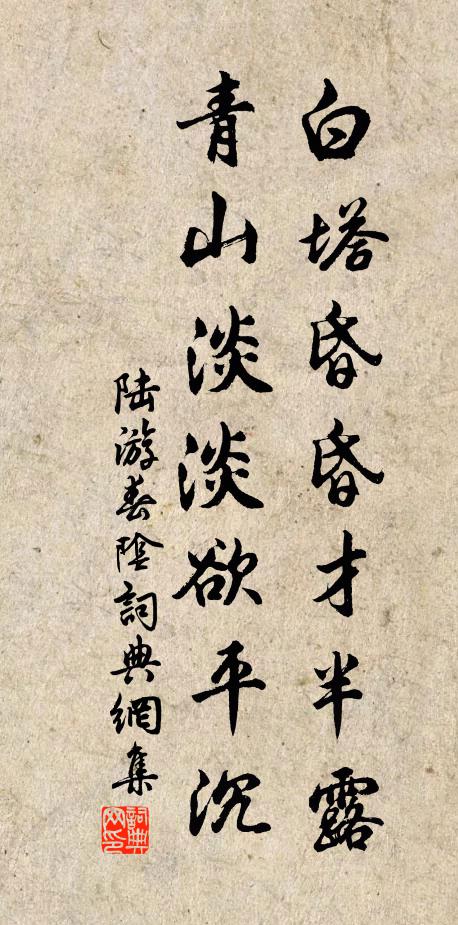 白塔昏昏才半露
青山淡淡欲平沉
陆游春陰詞典網集
詞典网印